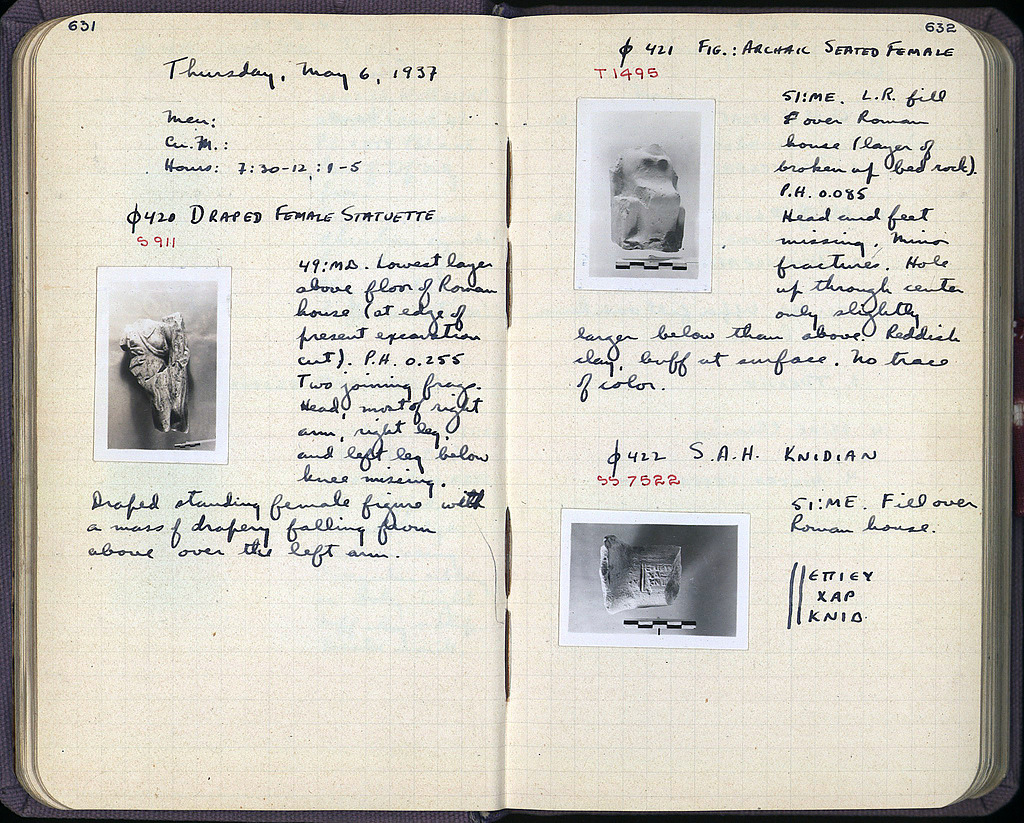 631
Thursday, May 6, 1937
Men:
Cu. M.:
Hours: 7:30-12; 1-5
ϕ420 DRAPED FEMALE STATUETTE
S 911
49:MΔ. Lowest layer
above floor of Roman
house (at edge of
present excavation
cut). P.H. 0.255
Two joining frags.
Head, most of right
arm, right leg,
and left leg below
knee missing.
Draped standing female figure with
a mass of drapery falling from
above over the left arm.
632
ϕ 421 FIG.: ARCHAIC SEATED FEMALE
T 1495
51:ME. L.R. fill
over Roman
house (layer of
broken up bed rock).
P.H. 0.085
Head and feet
missing. Minor
fractures. Hole
up through center
only slightly
larger below than above. Reddish
clay, buff at surface. No trace
of color.
ϕ422 S.A.H. KNIDIAN
SS 7522
51:ME. Fill over
Roman house.
ΕΠΙΕΥ
ΧΑΡ
ΚΝΙΔ